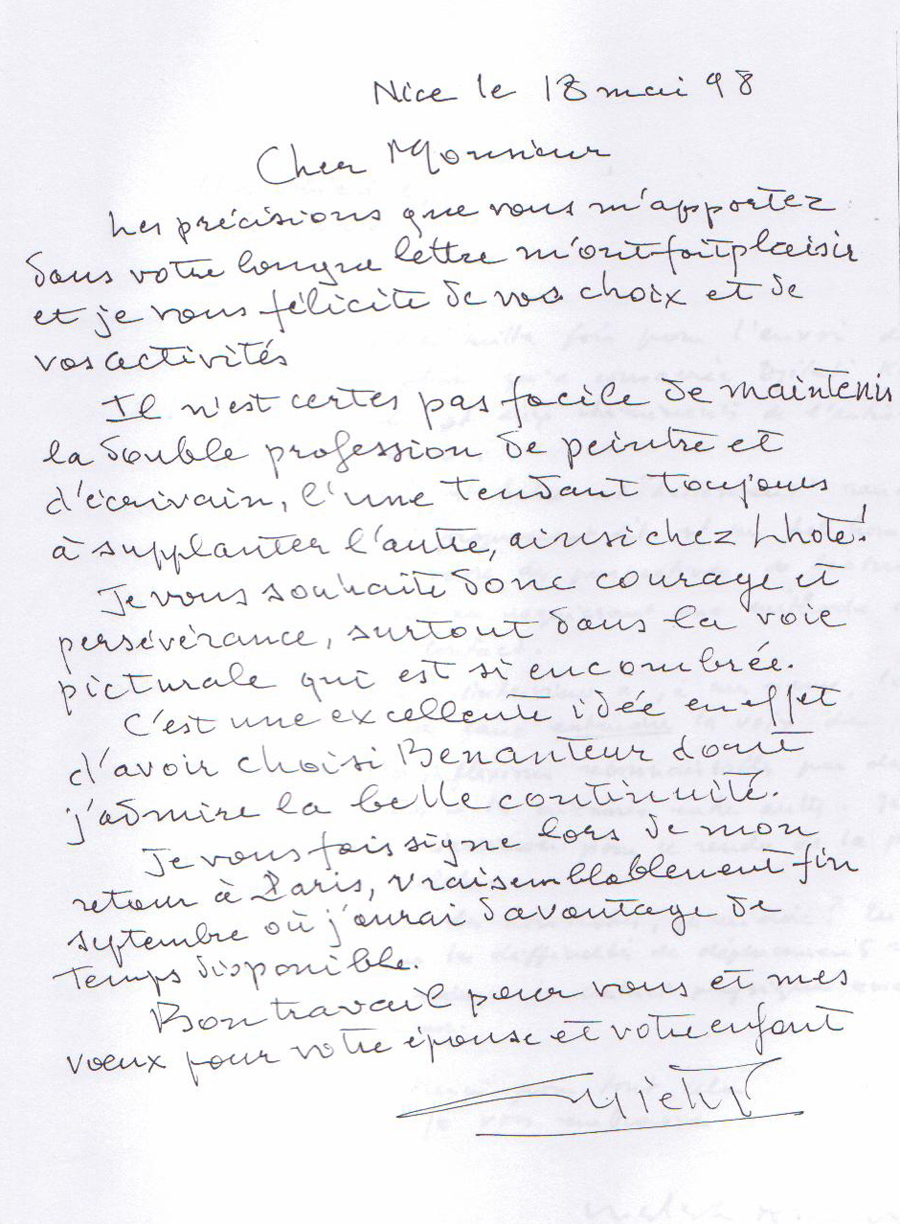 Nice le 18 mai 98
Cher Monsieur
Les précisions que vous m'apportez
dans votre longue lettre m'ont fait plaisir
et je vous félicite de vos choix et de
vos activités
Il n'est certes pas facile de maintenir
la double profession de peintre et
d'écrivain, l'une tendant toujours
à supplanter l'autre, ainsi chez Lhote!
Je vous souhaite donc courage et
persévérance, surtout dans la voie
picturale qui est si encombrée.
C'est une excellente idée en effet
d'avoir choisi Benanteur dont
j'admire la belle continuité.
Je vous fais signe lors de mon
retour à Paris, vraisemblablement fin
septembre où j'aurai davantage de
temps disponible.
Bon travail pour vous et mes
vœux pour votre épouse et votre enfant